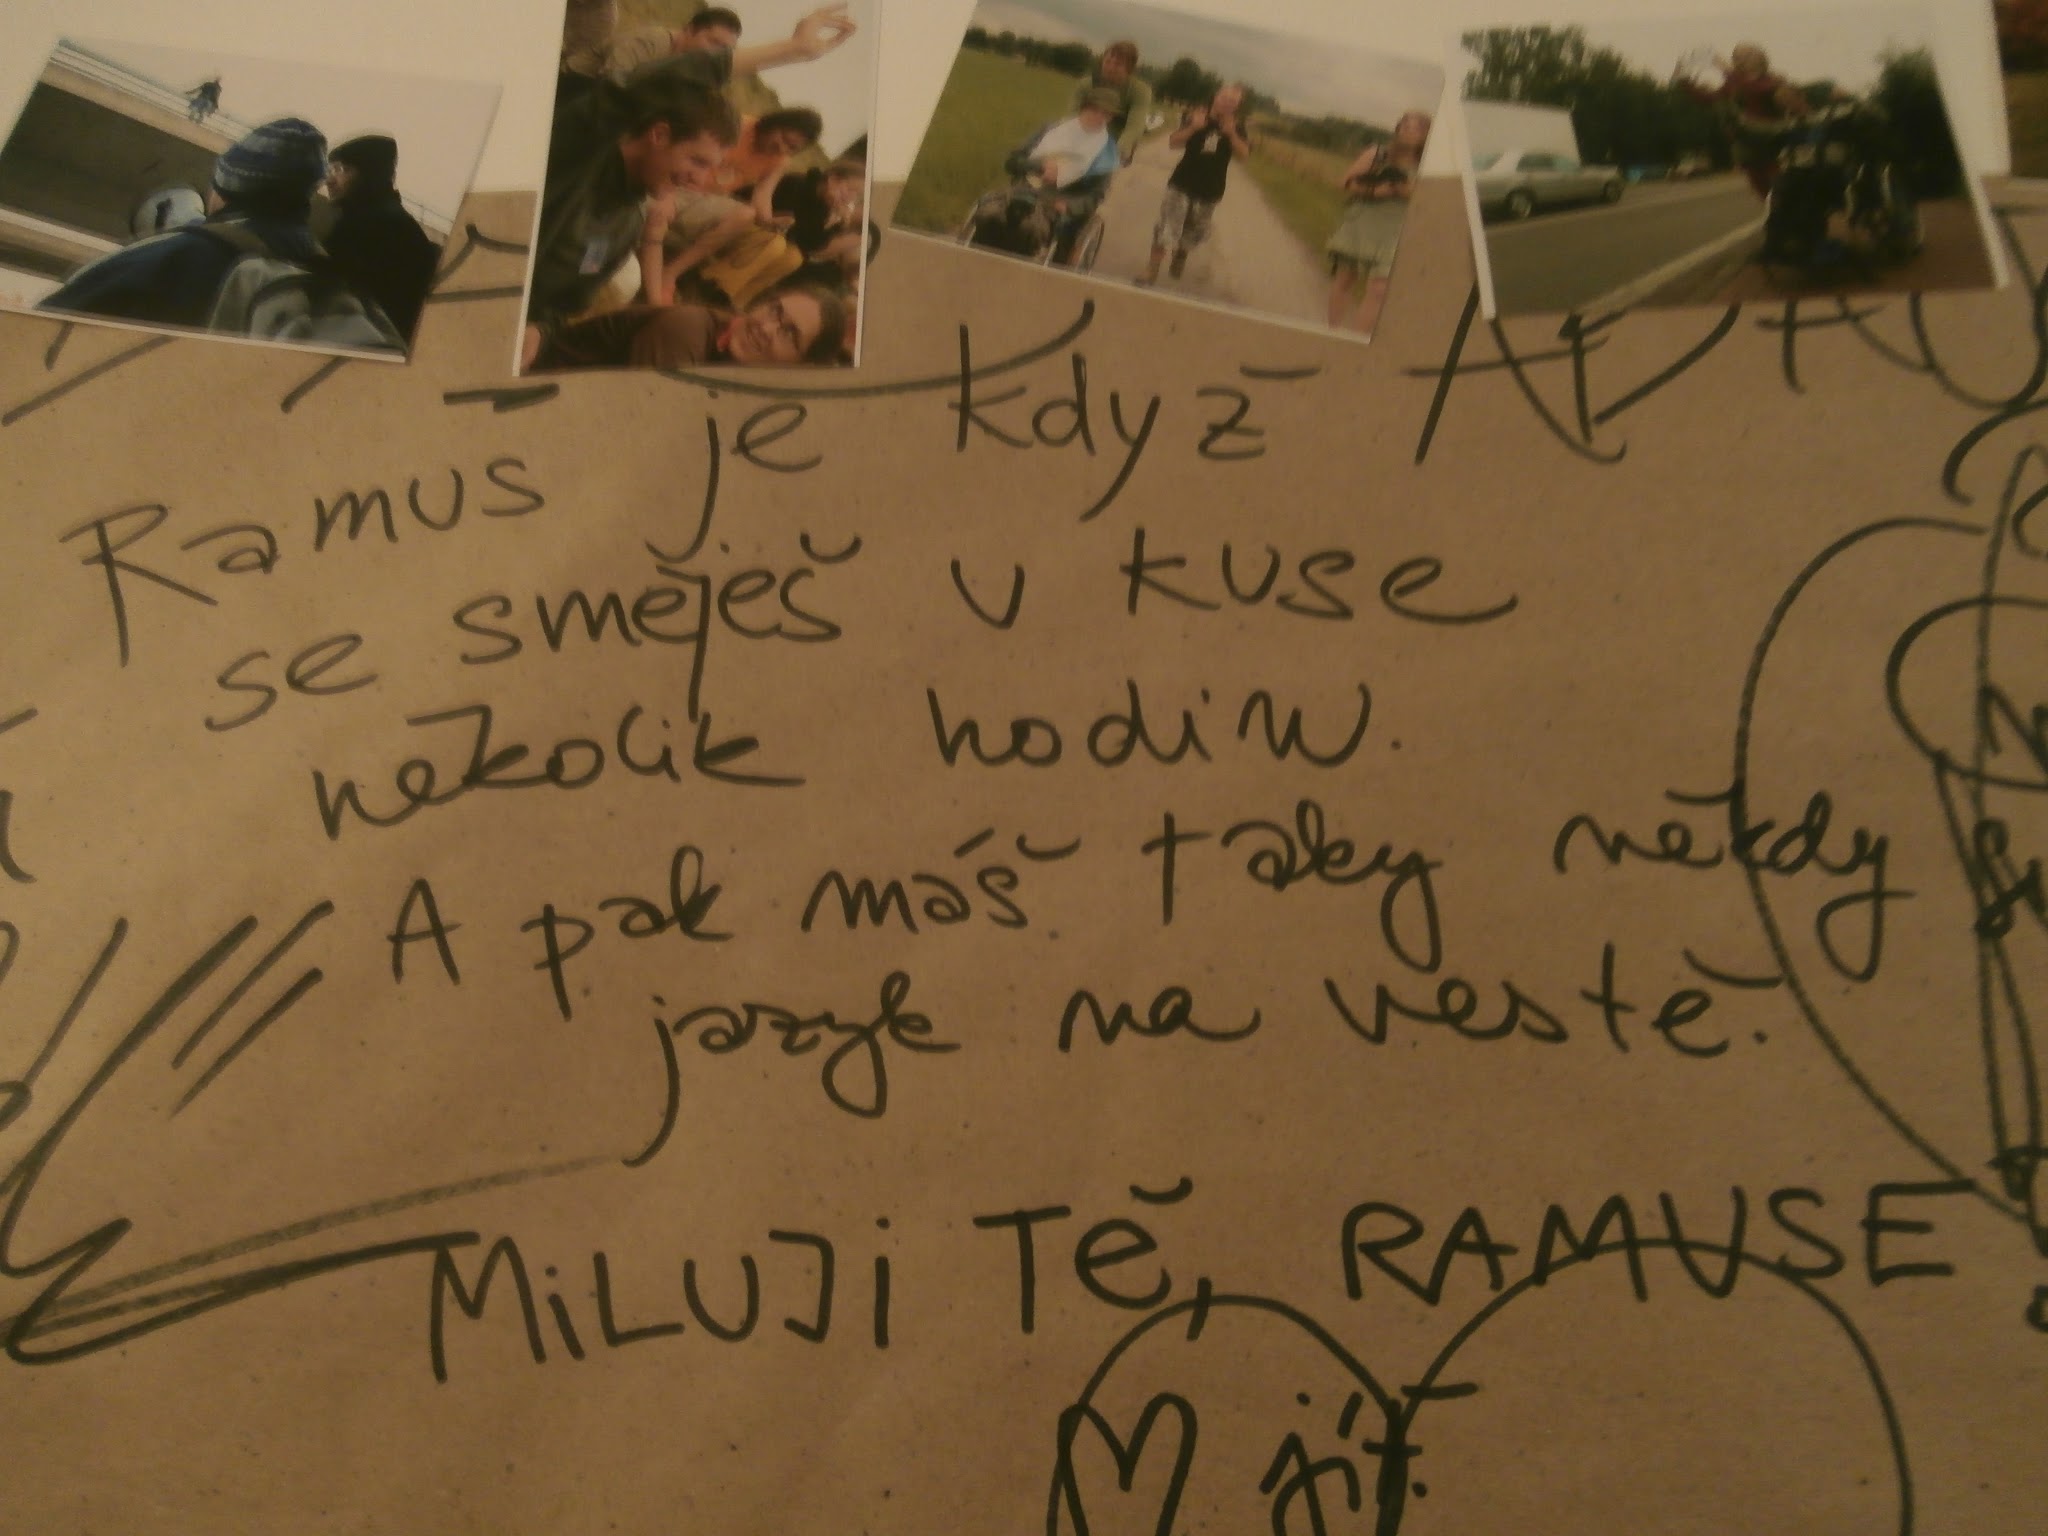 Ramuš je když
se směješ v kuse
několik hodin.
A pak máš taky někdy
jazyk na vestě.
MiLUJi TĚ, RAMUSE